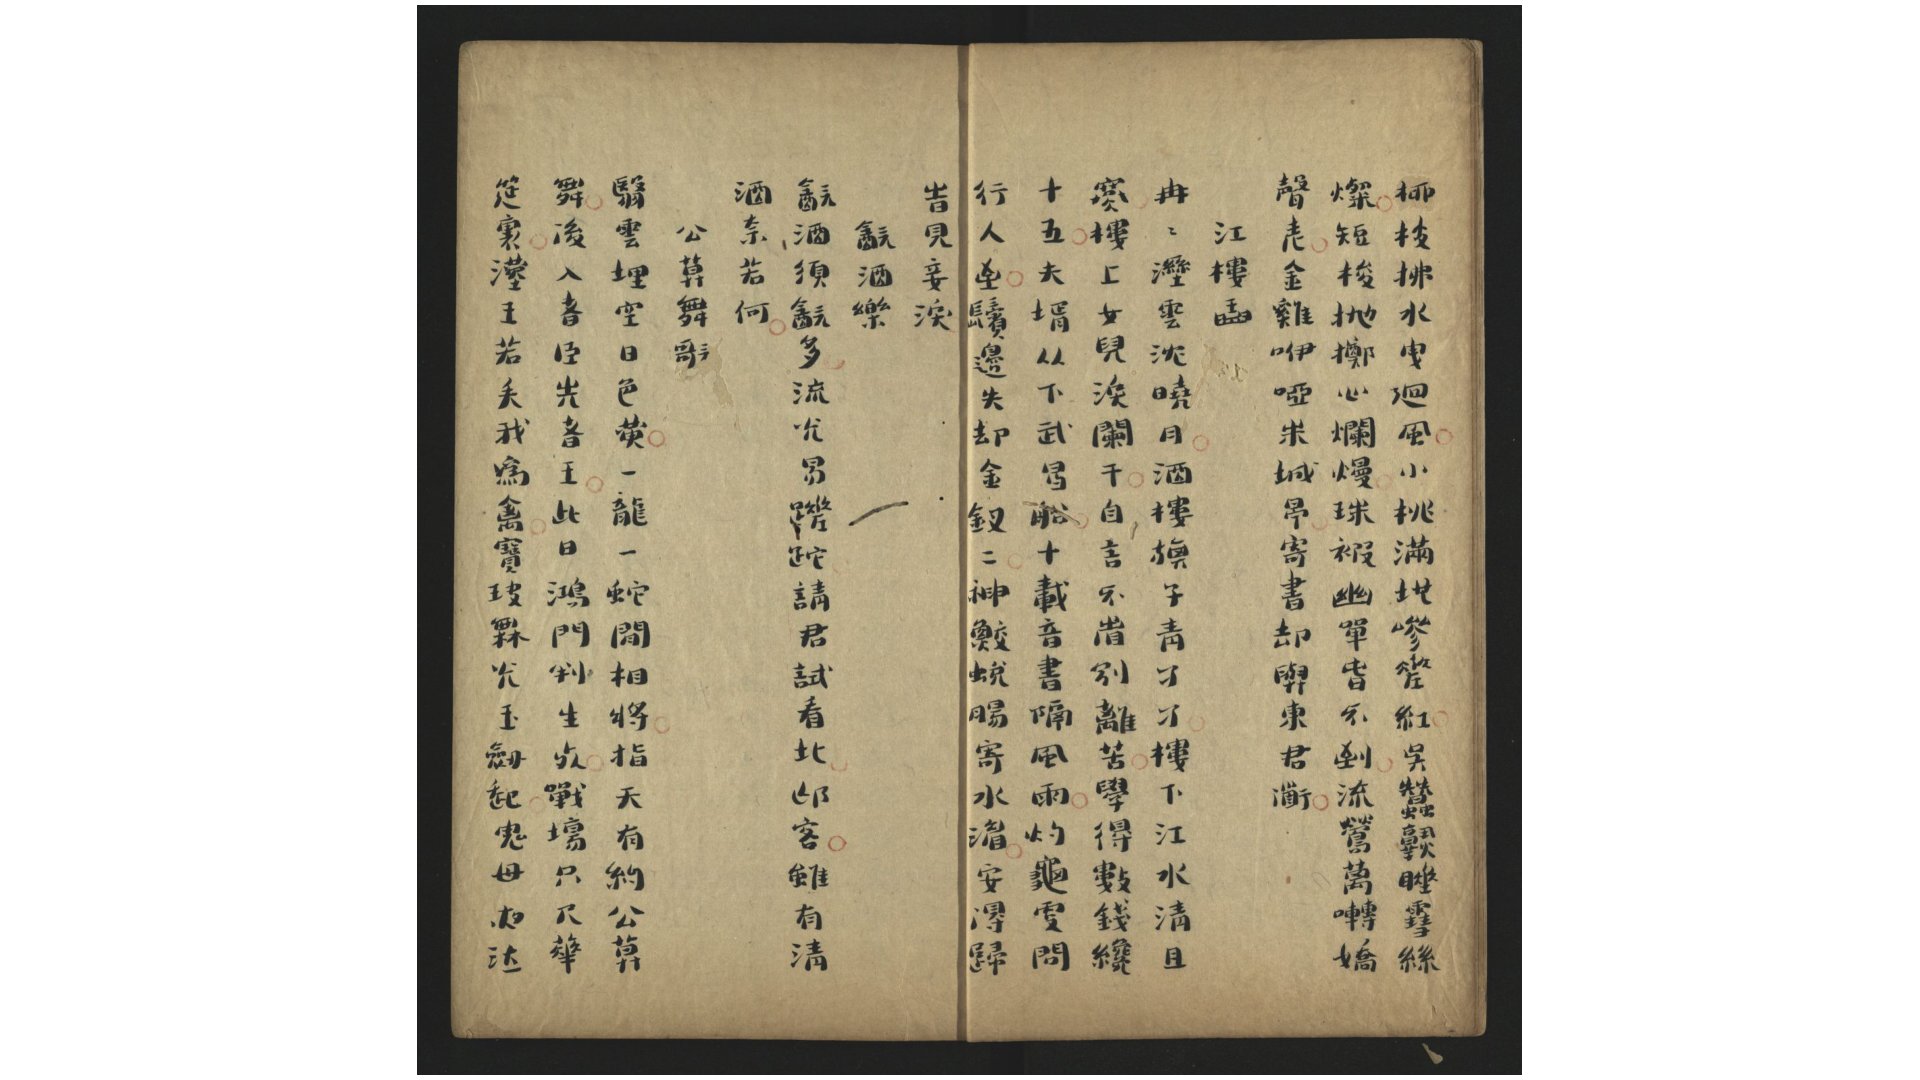 柳枝拂水曳迴風小桃滿地嵾嵳紅吳蠶飜睡雪絲
燦短梭拋擲心爛熳珠被幽單昔不到流鶯萬囀嬌
聲老金雞咿啞朱城昂寄書却與東君衡
江樓
冉〻溼雲沈曉月酒樓旗子青寸寸樓下江水清且
寒樓上女兒淚闌干自言不省別離苦學得數錢纔
十五夫壻从下武昌船十載音書隔風雨灼龜問
行人至鬢邊失却金釵二神蛻腸寄水湽安得歸
昔見妾淚
飮酒樂
飮酒須飮多流光易蹉跎請君試看北邙客雖有清
酒柰若何
公莫舞歌
翳雲埋空日色黃一龍一蛇間相將指天有約公莫
舞後入者臣先者王此日鴻門判生死戰場只尺華
筵裏漢王若失我爲禽寶玦光玉劒起鬼母夜泣